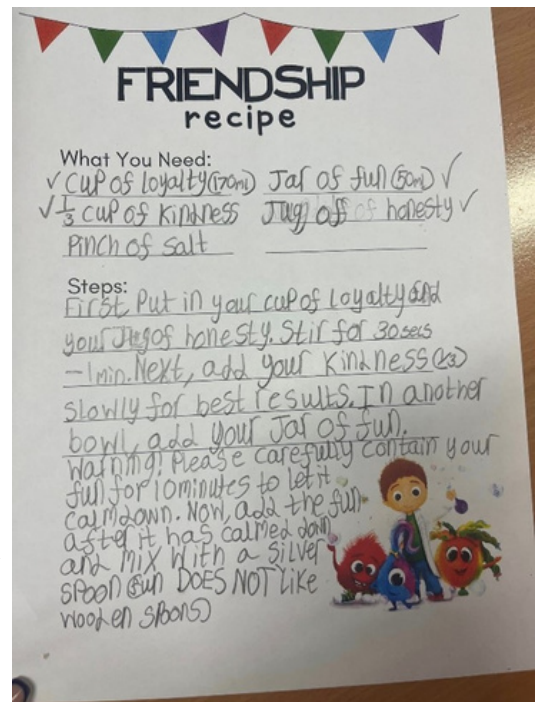 FRIENDSHIP
recipe
What You Need:
✓ cup of loyalty (170ml) Jar of fun (50ml) ✓
✓ 1/3 cup of kindness Jug of honesty ✓
Pinch of salt
Steps:
First, Put in your cup of loyalty and
your Jug of honesty. Stir for 30secs
-1min. Next, add your Kindness (1/3)
slowly for best results. In another
bowl, add your Jar of fun.
Warning! Please carefully contain your
fun for 10minutes to let it
calm down. Now, add the fun
after it has calmed down
and mix with a silver
spoon (fun DOES NOT like
wooden spoons)